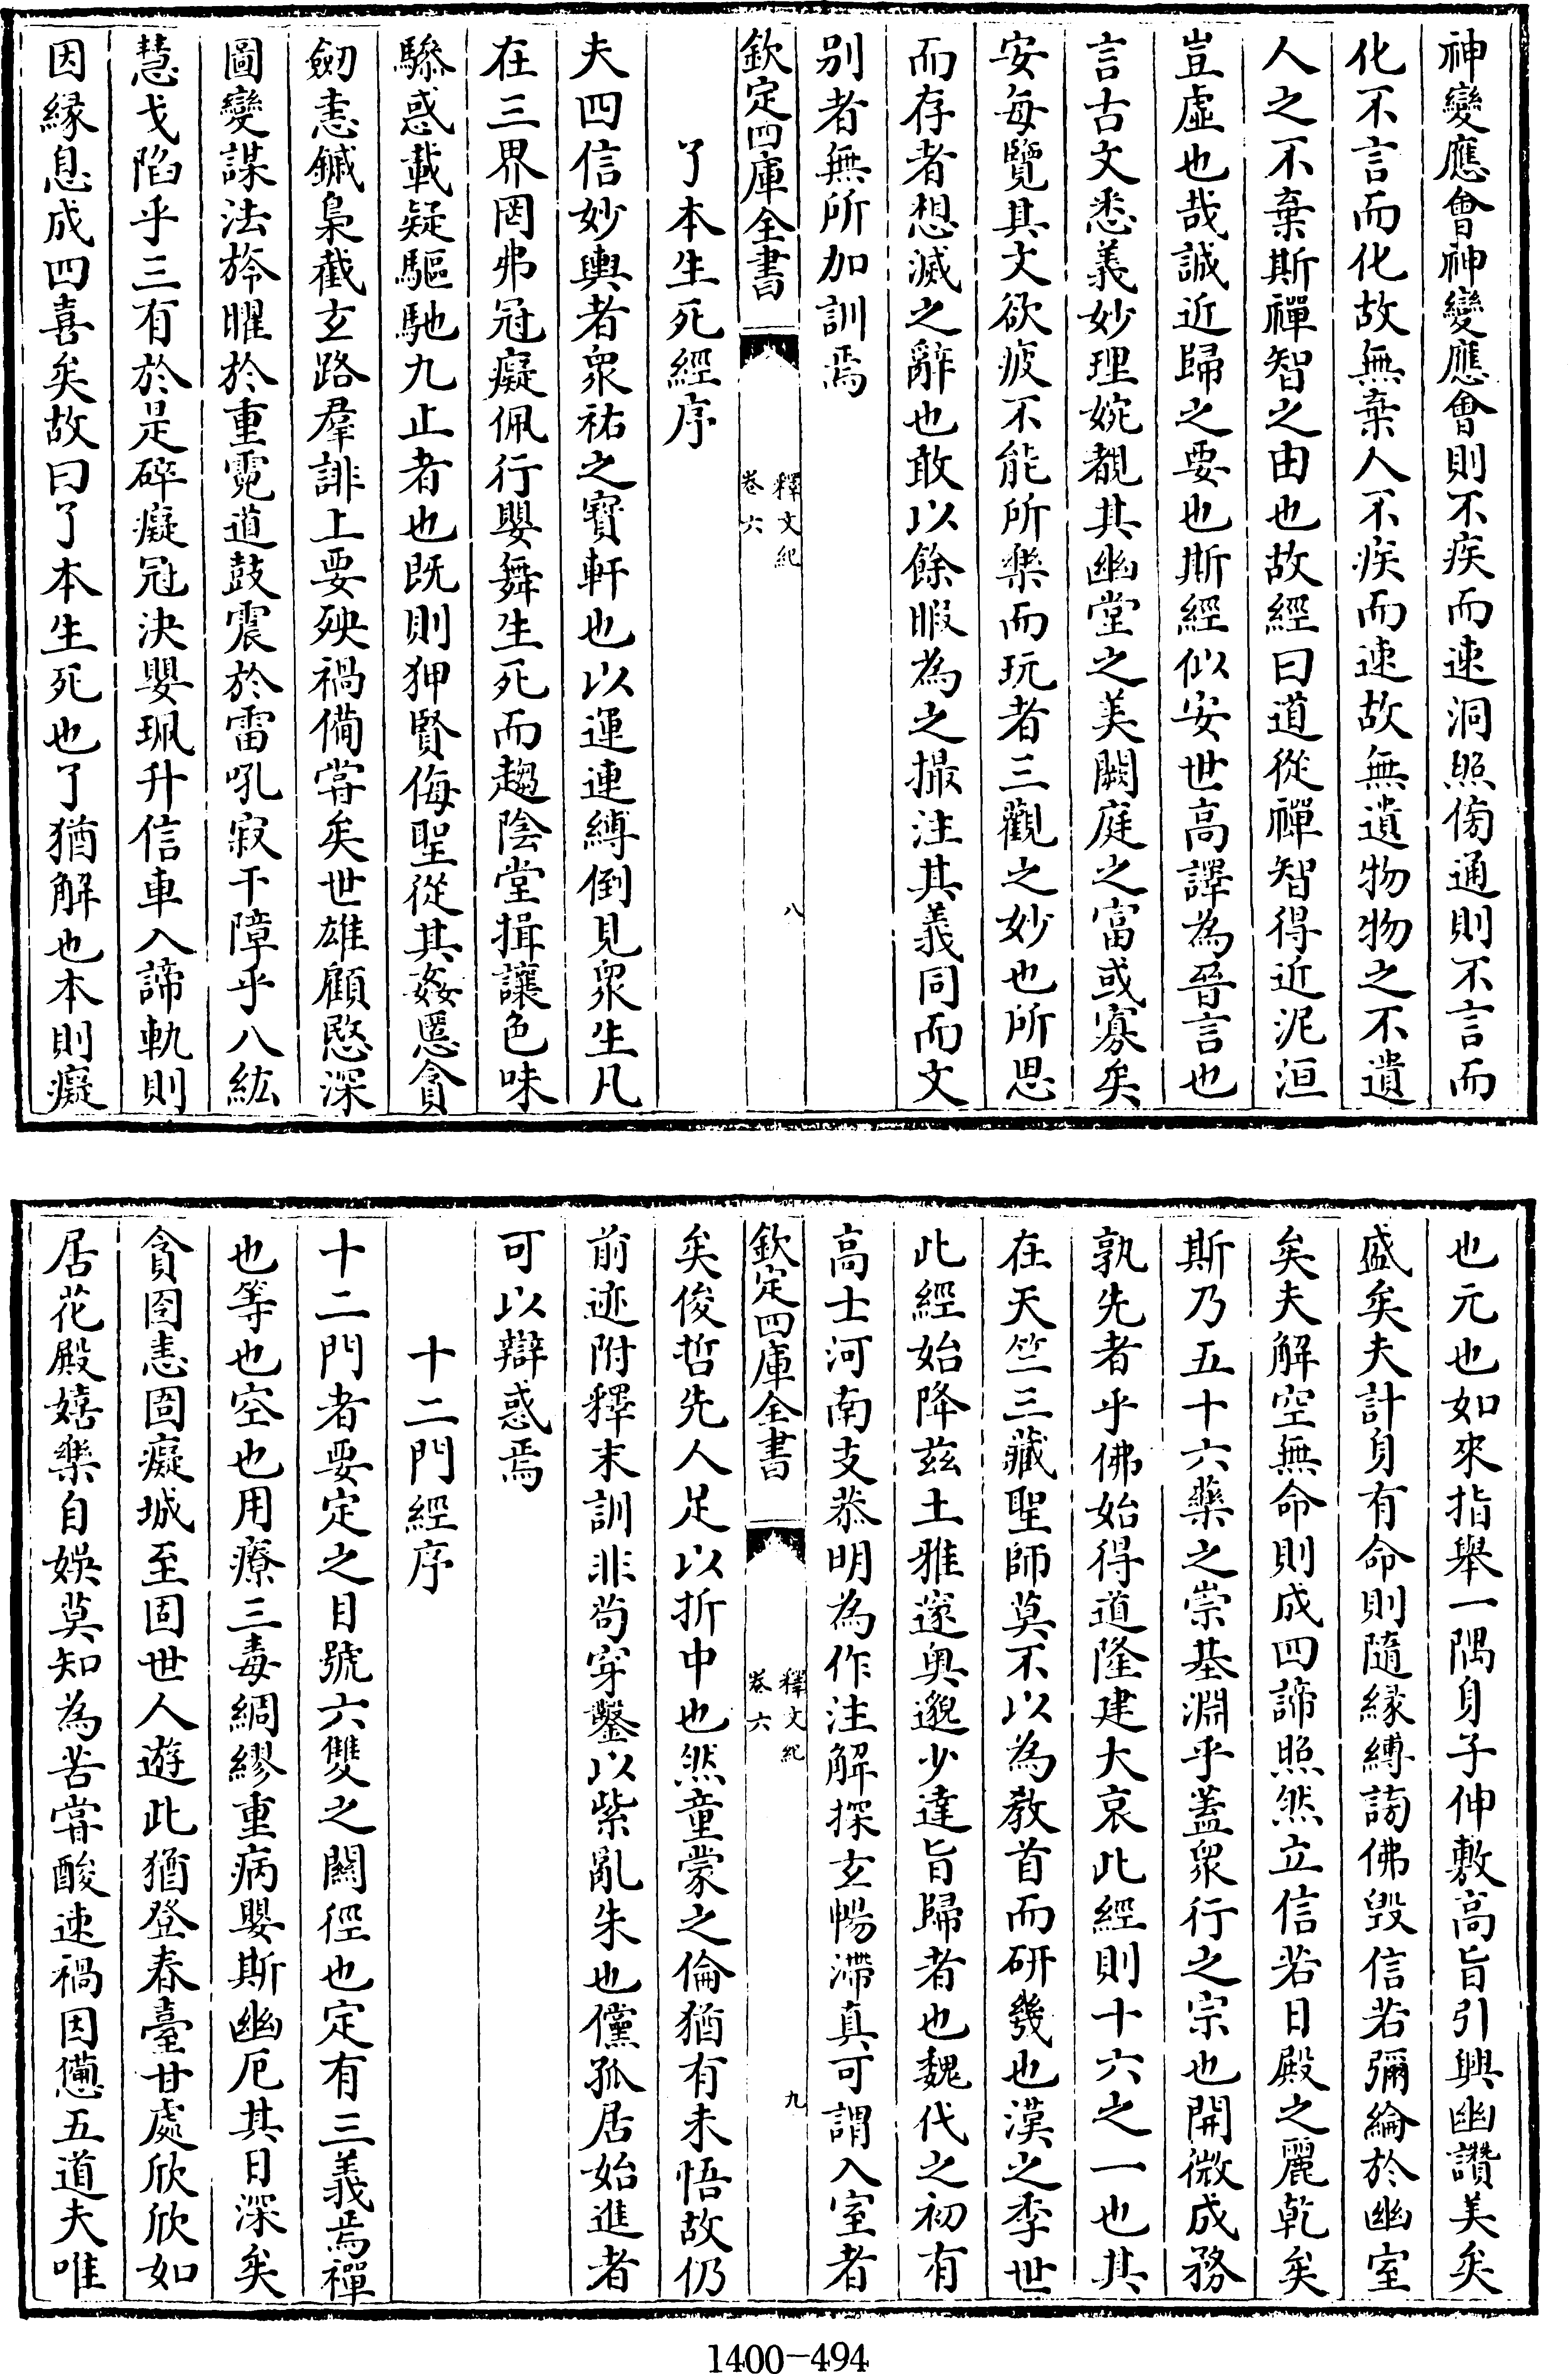 神變應會神變應會則不疾而速洞照傍通則不言而
化不言而化故無棄人不疾而速故無遺物物之不遺
人之不棄斯禪智之由也故經曰道從禪智得近泥洹
豈虛也哉誠近歸之要也斯經似安世高譯為晉言也
言古文悉義妙理婉覩其幽堂之美闕庭之富或寡矣
安每覽其文欲疲不能所樂而玩者三觀之妙也所思
而存者想滅之辭也敢以餘暇為之撮注其義同而文
别者無所加訓焉
欽定四庫全書
釋文紀
卷六
八
了本生死經序
夫四信妙輿者衆祐之寶軒也以運連縛倒見衆生凡
在三界罔弗冠癡佩行嬰舞生死而趨陰堂揖讓色味
驂惑載疑驅馳九止者也既則狎賢侮聖從其姦慝貪
劒恚鏚梟截玄路羣誹上要殃禍備嘗矣世雄顧愍深
圖變謀法旍曜於重霓道鼓震於雷吼寂干障乎八紘
慧戈陷乎三有於是碎癡冠決嬰珮升信車入諦軌則
因緣息成四喜矣故曰了本生死也了猶解也本則癡
也元也如來指舉一隅身子伸敷高旨引興幽讚美矣
盛矣夫計身有命則隨緣縛謗佛毀信若彌綸於幽室
矣夫解空無命則成四諦照然立信若日殿之麗乾矣
斯乃五十六藥之崇基淵乎蓋衆行之宗也開微成務
孰先者乎佛始得道隆建大哀此經則十六之一也其
在天竺三藏聖師莫不以為教首而研幾也漢之季世
此經始降兹土雅邃奥邈少達旨歸者也魏代之初有
高士河南支恭明為作注解探玄暢滯真可謂入室者
欽定四庫全書
釋文紀
卷六
九
矣俊哲先人足以折中也然童蒙之倫猶有未悟故仍
前迹附釋末訓非苟穿鑿以紫亂朱也儻孤居始進者
可以辯惑焉
十二門經序
十二門者要定之目號六雙之關徑也定有三義焉禪
也等也空也用療三毒綢繆重病嬰斯幽厄其日深矣
貪囹恚圄癡城至固世人遊此猶登春臺甘處欣欣如
居花殿嬉樂自娛莫知為苦嘗酸速禍因憊五道夫唯
1400-494